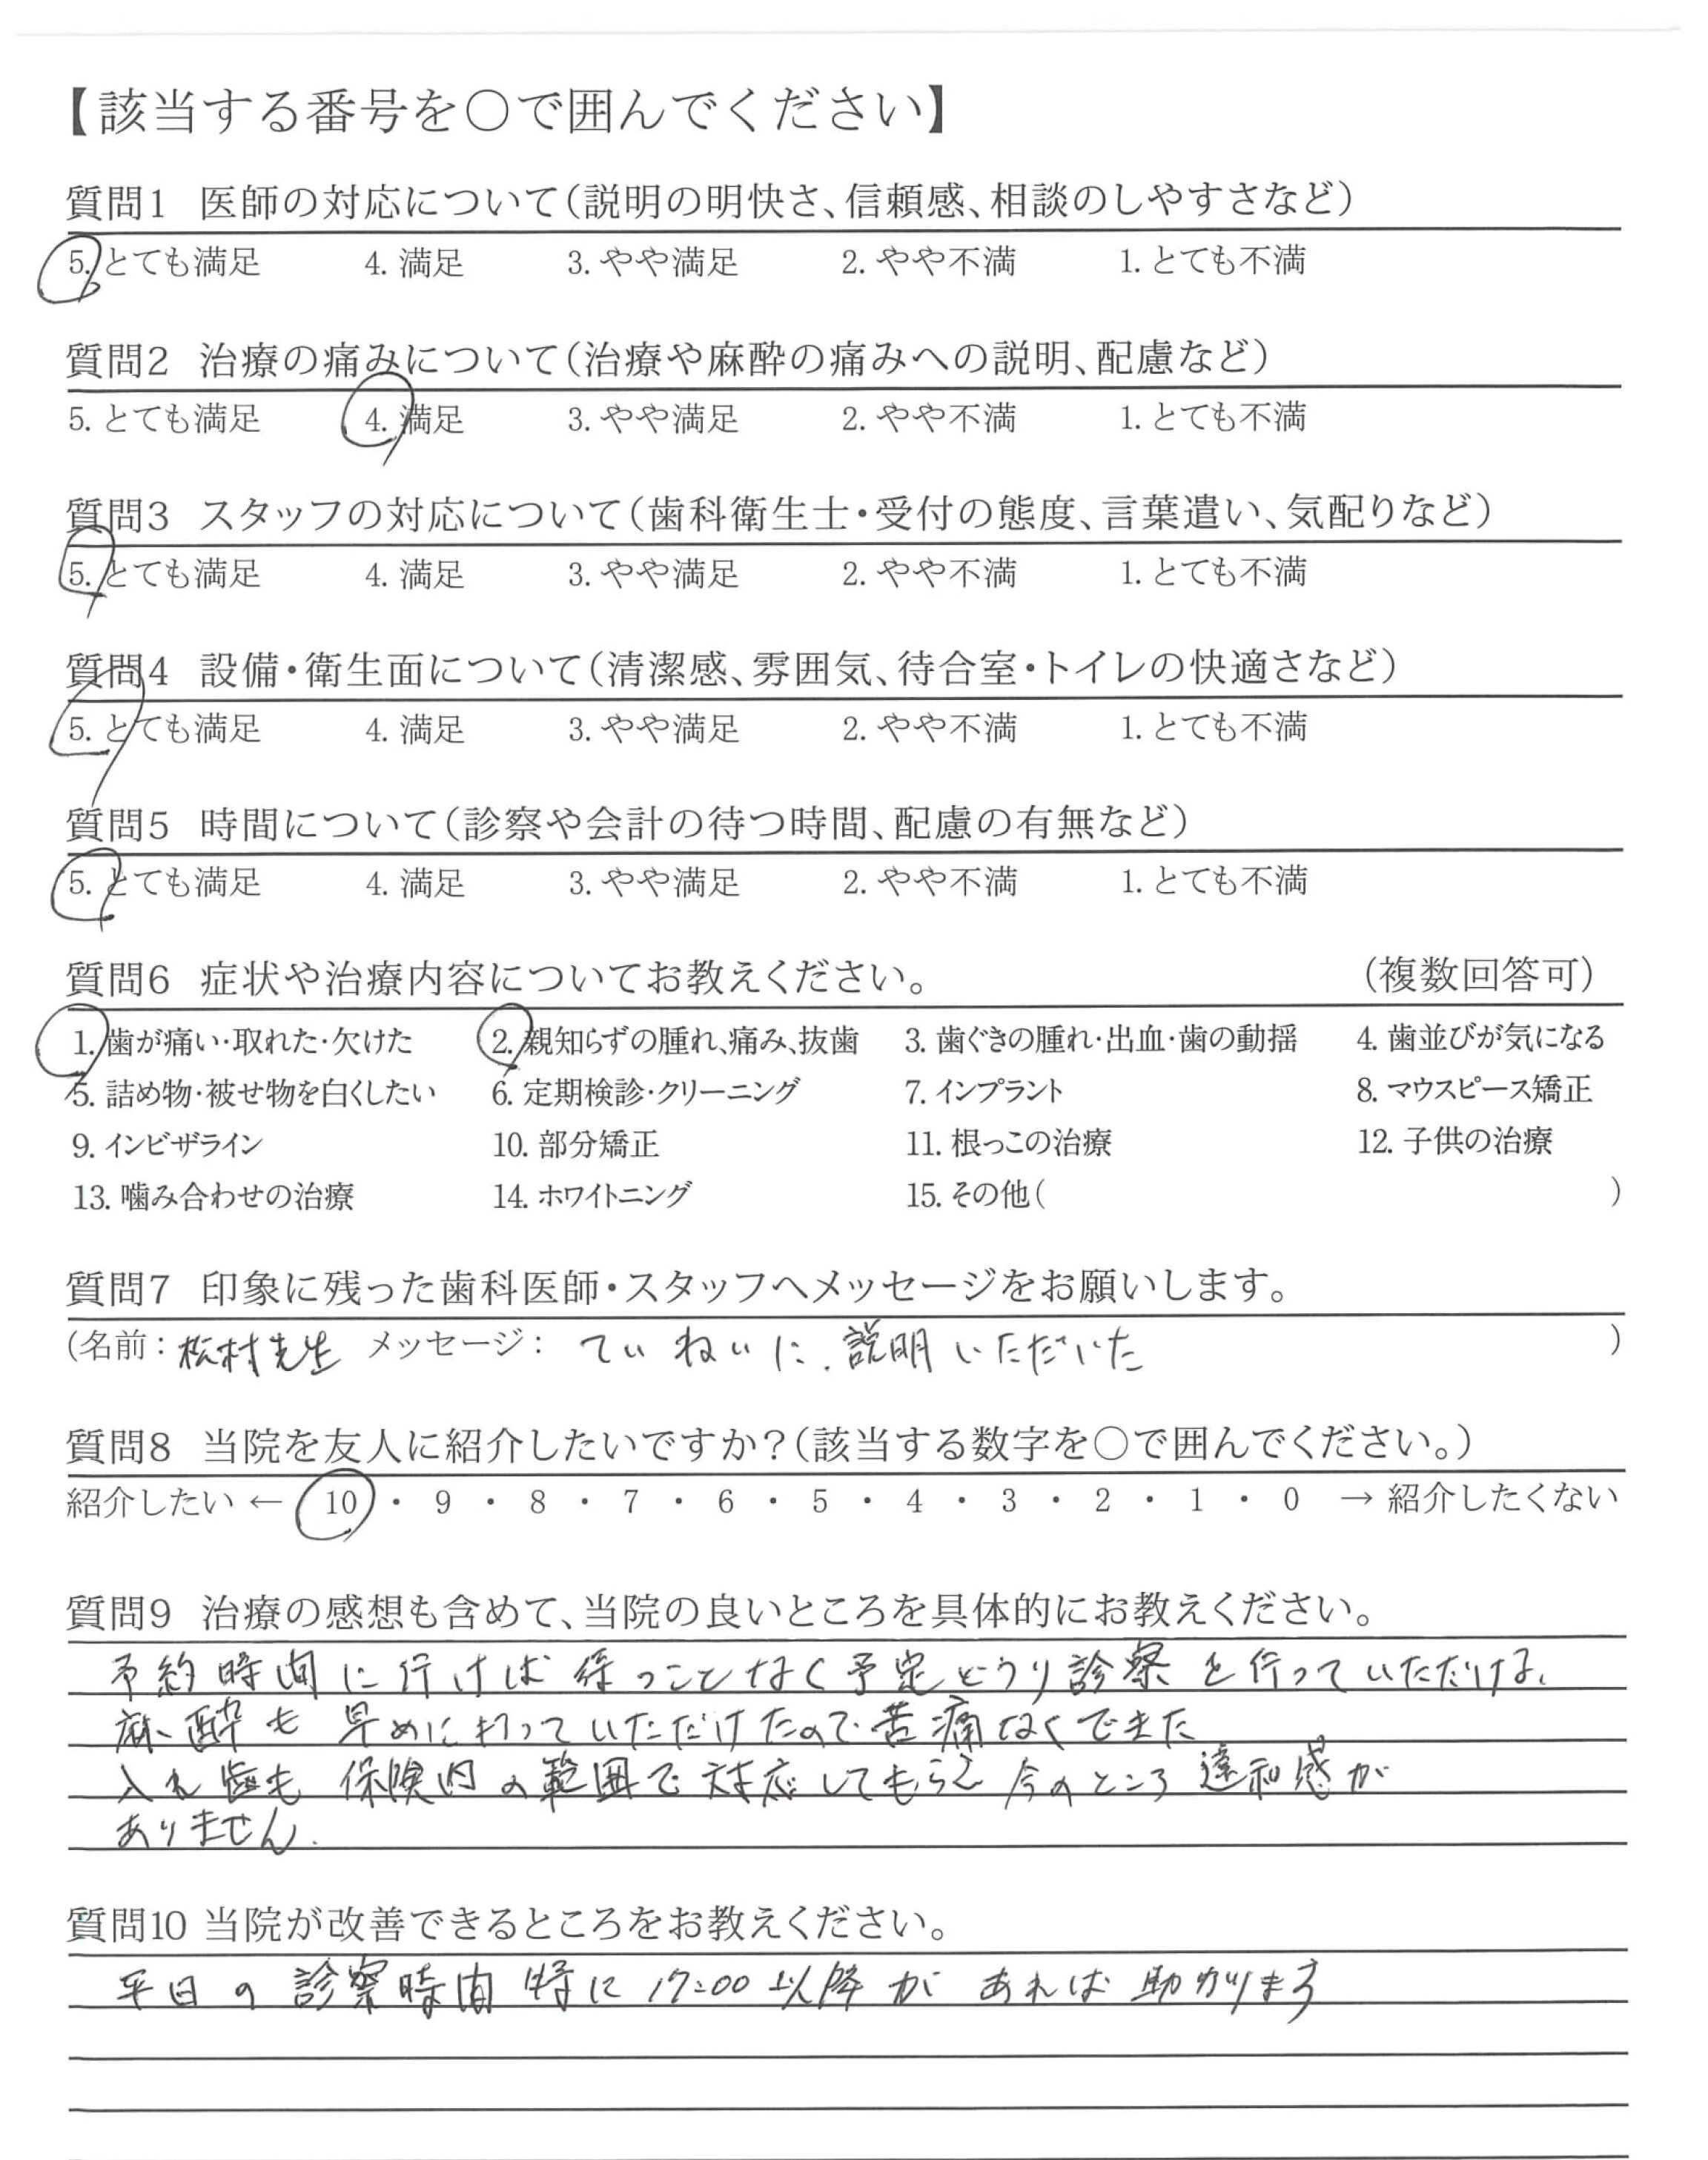 【該当する番号を○で囲んでください】
質問1 医師の対応について(説明の明快さ、信頼感、相談のしやすさなど)
5. とても満足 4. 満足 3. やや満足 2. やや不満 1. とても不満
質問2 治療の痛みについて(治療や麻酔の痛みへの説明、配慮など)
5. とても満足 4. 満足 3. やや満足 2. やや不満 1. とても不満
質問3 スタッフの対応について(歯科衛生士・受付の態度、言葉遣い、気配りなど)
5. とても満足 4. 満足 3. やや満足 2. やや不満 1. とても不満
質問4 設備・衛生面について(清潔感、雰囲気、待合室・トイレの快適さなど)
5. とても満足 4. 満足 3. やや満足 2. やや不満 1. とても不満
質問5 時間について(診察や会計の待つ時間、配慮の有無など)
5. とても満足 4. 満足 3. やや満足 2. やや不満 1. とても不満
質問6 症状や治療内容についてお教えください。 (複数回答可)
1. 歯が痛い・取れた・欠けた 2. 親知らずの腫れ、痛み、抜歯 3. 歯ぐきの腫れ・出血・歯の動揺 4. 歯並びが気になる
5. 詰め物・被せ物を白くしたい 6. 定期検診・クリーニング 7. インプラント 8. マウスピース矯正
9. インビザライン 10. 部分矯正 11. 根っこの治療 12. 子供の治療
13. 噛み合わせの治療 14. ホワイトニング 15. その他( )
質問7 印象に残った歯科医師・スタッフへメッセージをお願いします。
(名前: 松村先生 メッセージ: ていねいに.説明いただいた )
質問8 当院を友人に紹介したいですか?(該当する数字を○で囲んでください。)
紹介したい ← 10 ・ 9 ・ 8 ・ 7 ・ 6 ・ 5 ・ 4 ・ 3 ・ 2 ・ 1 ・ 0 → 紹介したくない
質問9 治療の感想も含めて、当院の良いところを具体的にお教えください。
予約時間に行けば待つことなく予定どうり診察を行っていただける、
麻酔も早めに打っていただけたので苦痛なくできた
入れ歯も保険内の範囲で対応してもらえ今のところ違和感が
ありません.
質問10 当院が改善できるところをお教えください。
平日の診察時間特に17:00以降があれば助かります